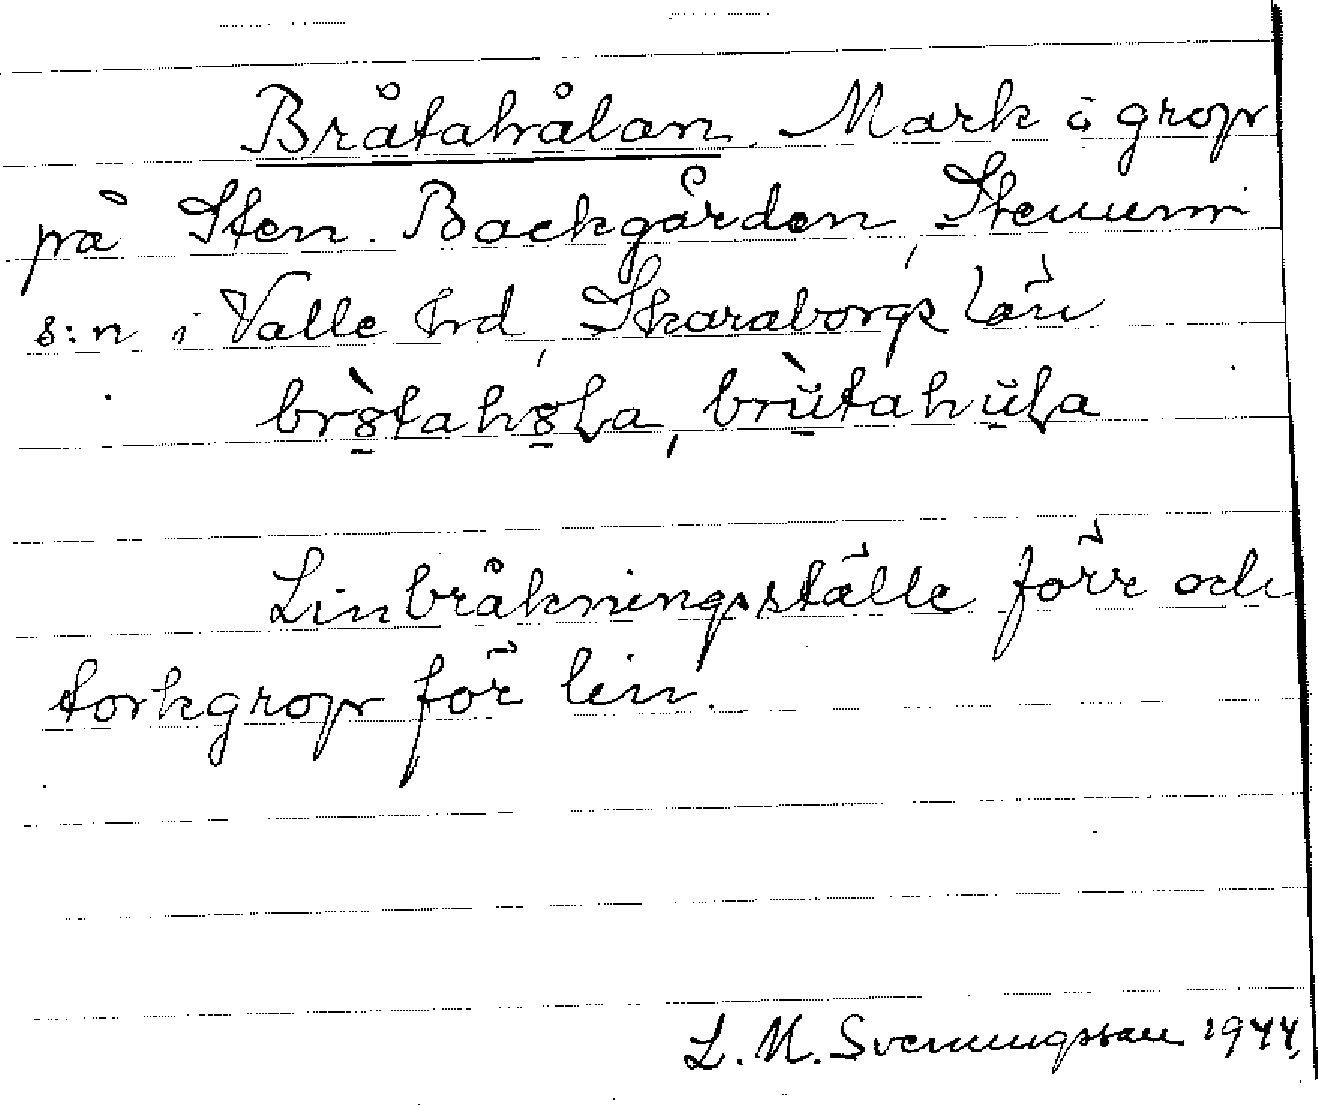 Bråtahålan. Mark å grop
på Sten. Backgården, Stenum
s:n i Valle hrd, Skaraborgs län

Linbråkningsställe förr och
torkgrop för lin.
L. M. Svenungsson 1944.